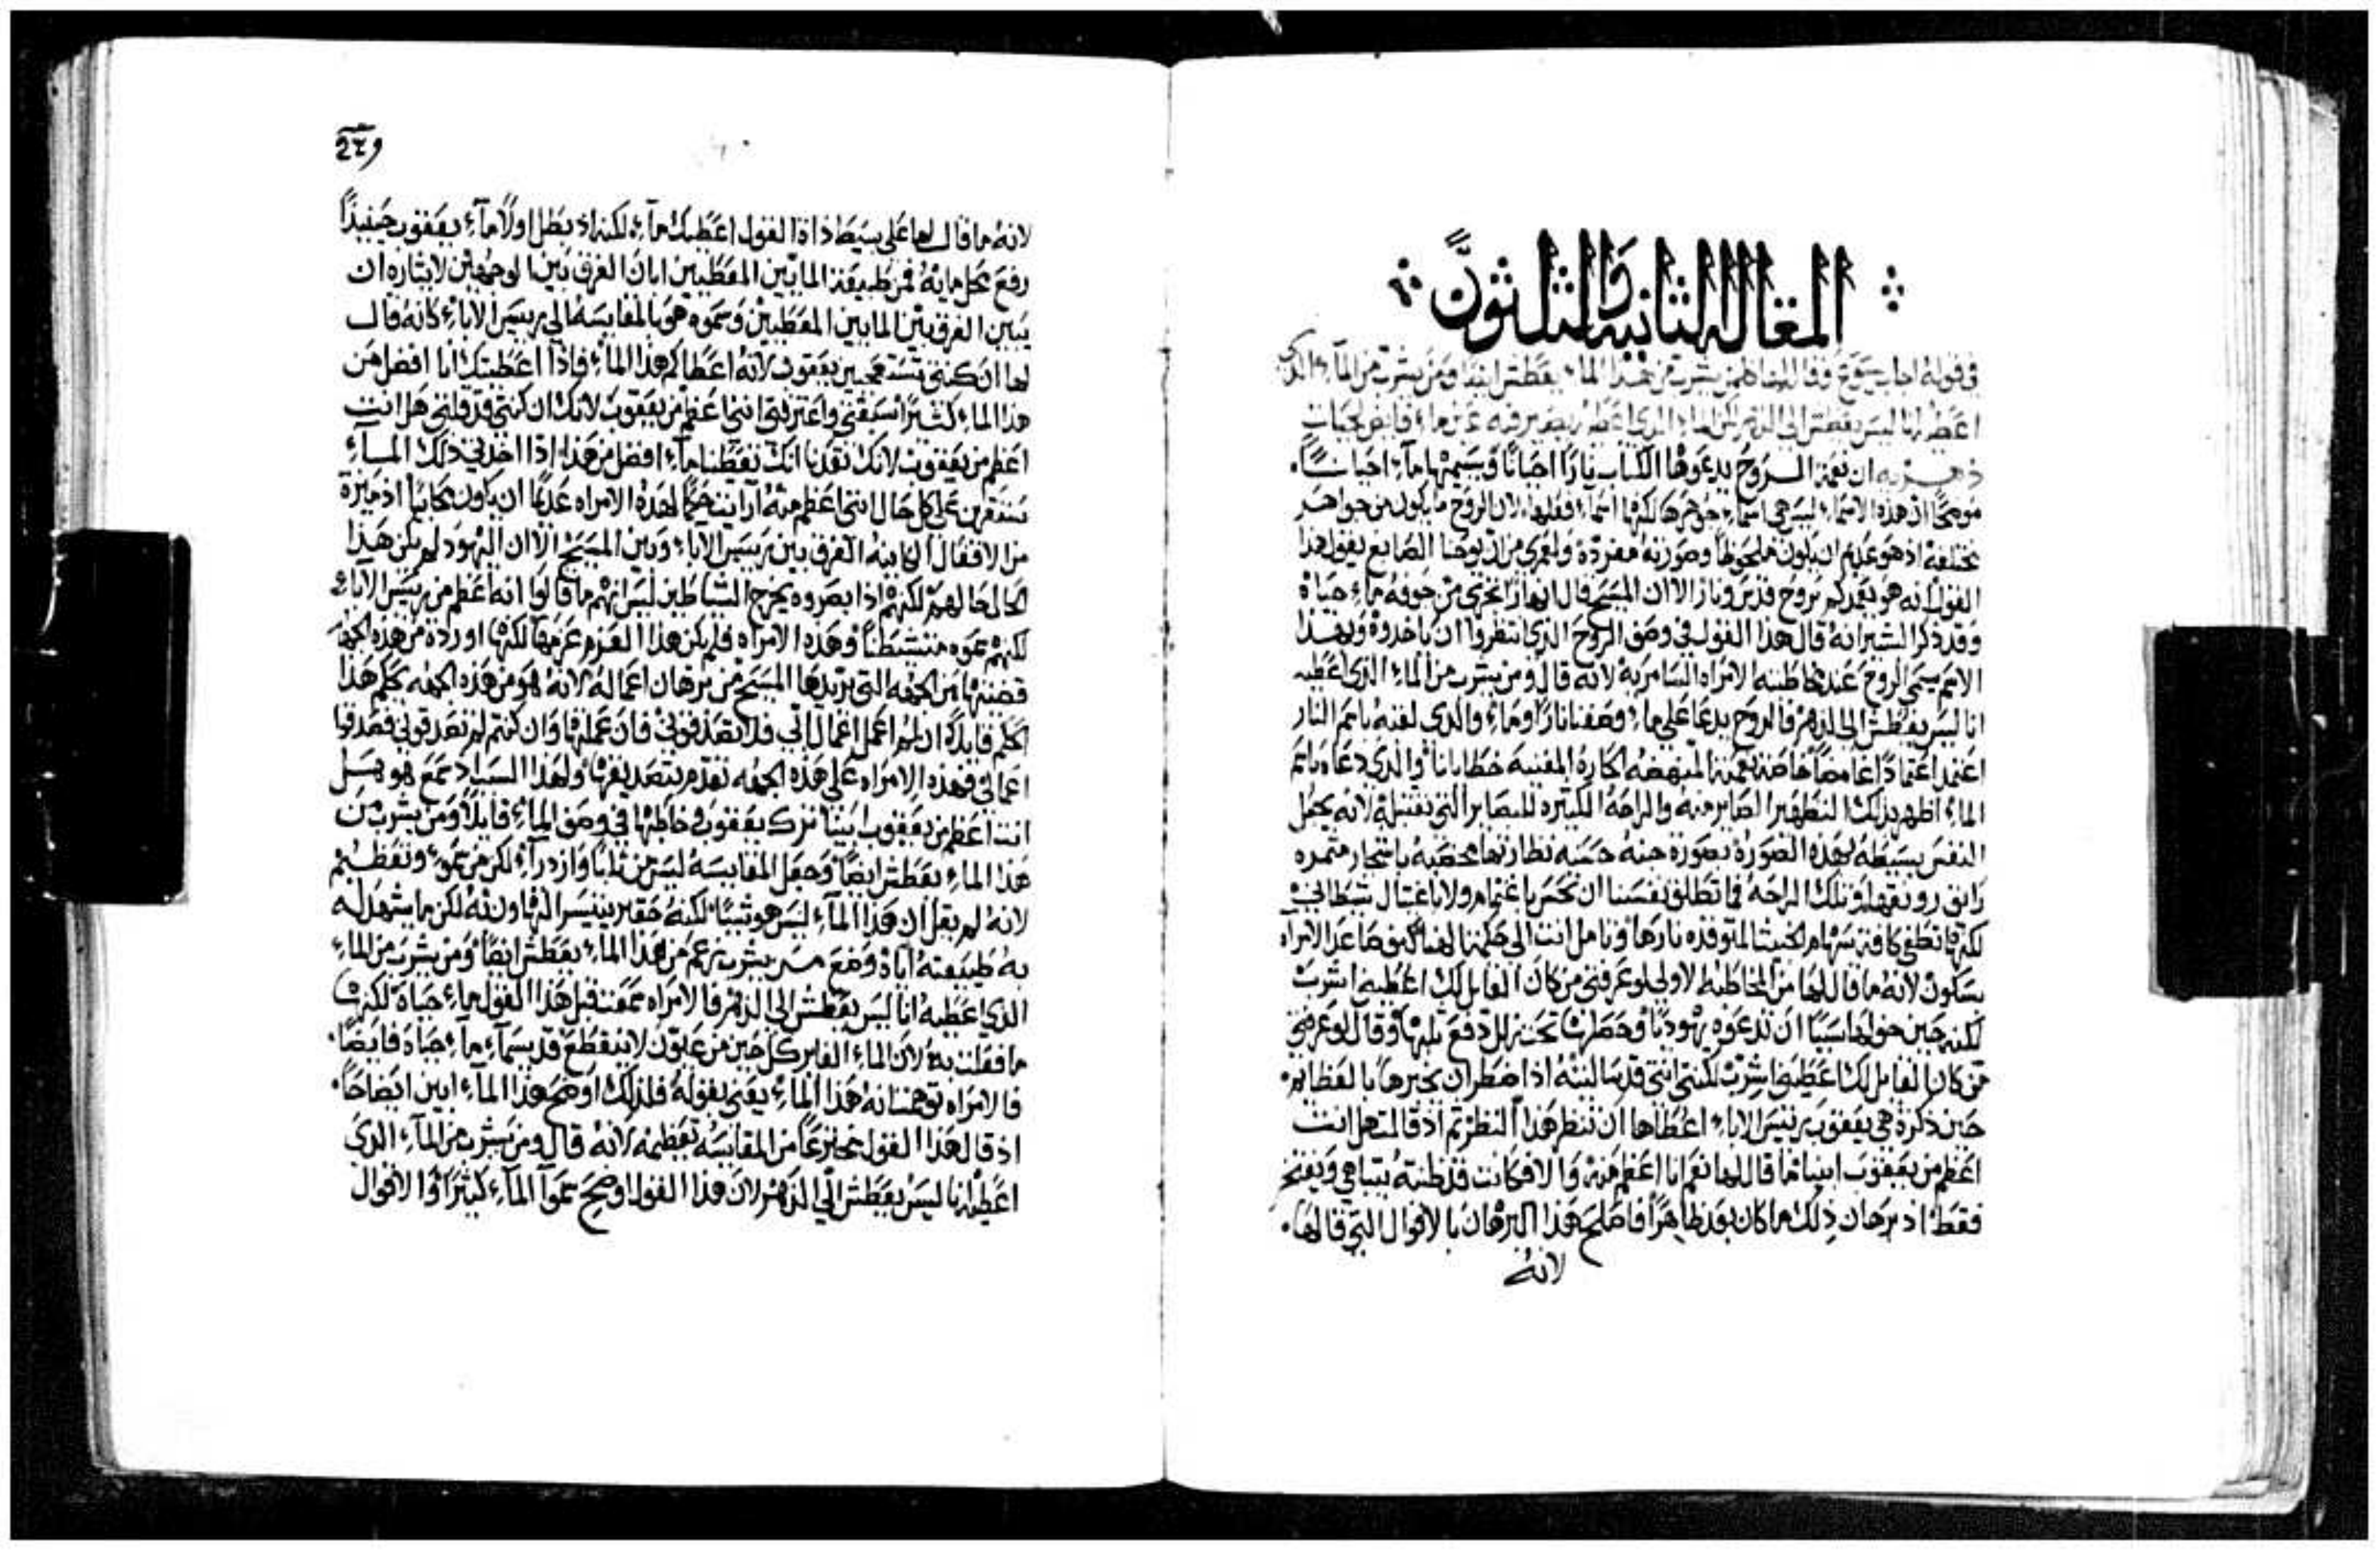 المقاله الثانيه والثلثون
في قوله اجاب يسوع وقال لها كلمن يشرب من هذا الماء يعطش ايضا ومن يشرب من الماء الذي
اعطيه انا ليس يعطش الى الدهر لكن الماء الذي اعطيه يصير فيه عين ماء فايض لحيات
ان نعمة الروح يدعوها الكتاب نارا احيانا ويسميها ماء احيانا
موضحا ان هذه الاسماء ليس هي اسماء جوهرها لكنها اسماء فعلها لان الروح ما يكون من جواهر
مختلفه اذ هو عديم ان يكون ملحوظا وصورته مفرده ولعمري من ان يوحنا الصابغ يقول هذا
القول انه هو يعمدكم بروح قدس ونار الا ان المسيح قال انهارا تجري من جوفه ماء حياه
وقد ذكر البشير انه قال هذا القول في وصف الروح الذي انتظروا ان ياخدوه وبهذا
الاسم يسمي الروح عند مخاطبته الامراه السامريه لانه قال ومن يشرب من الماء الذي اعطيه
انا ليس يعطش الى الدهر فالروح يدعا على ما وصفنا نارا وماء والذي لقبه باسم النار
اعتمد اعتمادا غامضا خاصة نعمتها المنهضه الحاره المفنيه خطايانا والذي دعاه باسم
الماء اظهر بذلك التطهير الصاير منه والراحه الكثيره للبصاير التي تقتبله لانه يجعل
النفس بسيطه بهذه الصوره بصورة جنه حسنه نظارتها مخصبه باشجار مثمره
رايق رونقها وتلك الراحه فما تطلق نفسنا ان تحس باغتمام ولا باغتيال شيطاني
لكنها تطفي كافة سهام الخبيث المتوقده نارها وتامل انت الى حكمة الهنا كيف صاعد الامراه
بسكون لانه ما قال لها من المخاطبه الاولى لو عرفتي من كان القايل لك اعطيني اشرب
لكنه حين خولها سببا ان تدعوه يهوديا وحصلت تحت زلل دفع ثلبها وقال لو عرفتي
من كان القايل لك اعطيني اشرب لكنتي انتي قد سالتيه اذا ضطر ان يخبرها بالفظايم
حين ذكرة هي يعقوب رييس الاباء اعطاها ان تنظر هذا النظر ثم اذ قالت هل انت
اعظم من يعقوب ابينا ما قال لها نعم انا اعظم منه والا فكانت قد ظنته يتباهى ويفتخر
فقط اذ برهان ذلك ما كان بعد ظاهرا فاصلح هذا البرهان بالاقوال التي قالها
لانه
لانه ما قال لها على بسيط ذاة القول اعطيك ماء لكنه اذ بطل اولا ماء يعقوب حينيذا
رفع محل مايه فمن طبيعة المايين المعطيين ابان الفرق بين الوجهين لايثاره ان
يبين الفرق بين المايين المعطيين وسموه هو بالمقايسه الى رييس الاباء كانه قال
لها ان كنتي تستعجبين يعقوب لانه اعطاكم هذا الماء فاذا اعطيتك انا افضل من
هذا الماء كثيرا سبقتي واعترفتي انني اعظم من يعقوب لانك ان كنتي قد قلتي هل انت
اعظم من يعقوب لانك تعدنا انك تعطينا ماء افضل من هذا اذا اخدتي ذلك الماء
ستقرين على كل حال انني اعظم منه اراينت حكما لهذه الامراه عديما ان يكون محابيا اذ ميزة
من الافعال الكاينه الفرق بين رييس الاباء وبين المسيح الا ان اليهود لم يكن هذا
الحال حالهم لكنهم اذا بصروه يخرج الشياطين ليس انهم ما قالوا انه اعظم من رييس الاباء
لكنهم سموه متشيطنا وهذه الامراه فلم يكن هذا العزم عزمها لكنها اوردة من هذه الجهه
قضيتها من الجهه التي يريدها المسيح من برهان اعماله لانه هو من هذه الجهه يحكم هذا
الحكم قايلا ان لم اعمل اعمال ابي فلا تصدقوني فان عملتها وان كنتم لم تصدقوني فصدقوا
اعمالي فهذه الامراه على هذه الجهه تقدم بتصديقها ولهذا السبب اذ سمع هو هل
انت اعظم من يعقوب ابينا ترك يعقوب وخاطبها في وصف الماء قايلا ومن يشرب من
هذا الماء يعطش ايضا وجعل المقايسه ليس من ثلبا وازدراء لكن من سمو وتعظيم
لانه لم يقل ان هذا الماء ليس هو شيا لكنه حقير يتيسر التهاون به لكن ما يشهد له
به طبيعته اياه وضع من يشرب زعم من هذا الماء يعطش ايضا ومن يشرب من الماء
الذي اعطيه انا ليس يعطش الى الدهر فالامراه سمعت قبل هذا القول ماء حياه لكنها
ما فعلت به لان الماء الفاير كل حين من عيون لا تنقطع قد يسماء ماء حياه فايضا
فالامراه توهمت انه هذا الماء يعني بقوله فلذلك اوضح هذا الماء ابين ايضاحا
اذ قال هذا القول مخترعا من المقايسه تعظيمه لانه قال ومن يشرب من الماء الذي
اعطيه انا ليس يعطش الى الدهر لان هذا القول اوضح سموا الماء كثيرا والاقوال